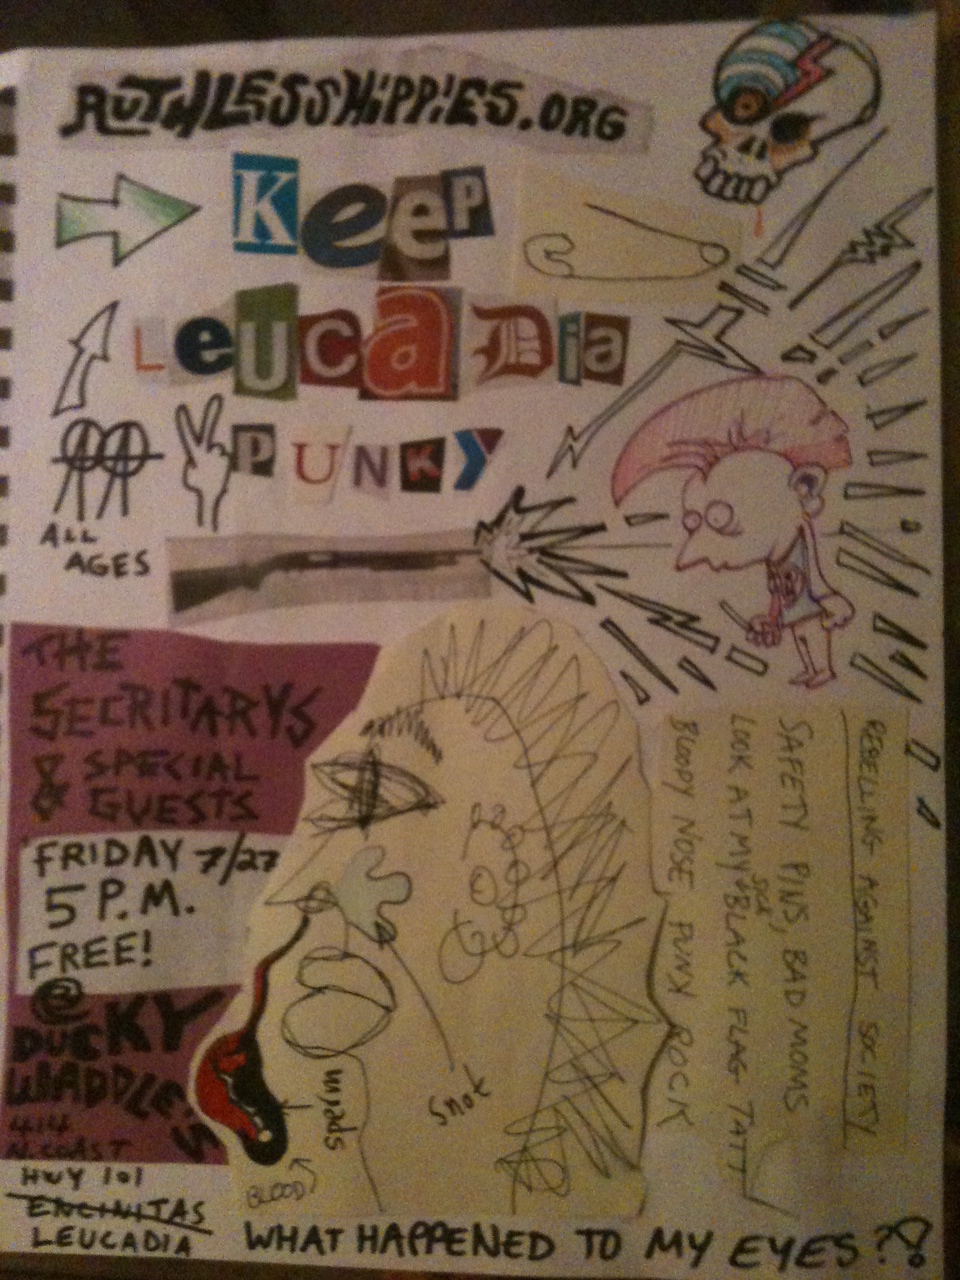 RUTHLESSHIPPIES.ORG
Keep
LeUCaDia
PUNKY
ALL
AGES
THE
SECRITARYS
& SPECIAL
GUESTS
FRIDAY 7/27
5 P.M.
FREE!
@
DUCKY
WADDLE'S
414
N. COAST
HWY 101
ENCINITAS
LEUCADIA
REBELLING AGAINST SOCIETY
SAFETY PINS, BAD MOMS
LOOK AT MY SICK BLACK FLAG TATT
BLOODY NOSE, PUNK ROCK
Snot
BLOOD
WHAT HAPPENED TO MY EYES?!